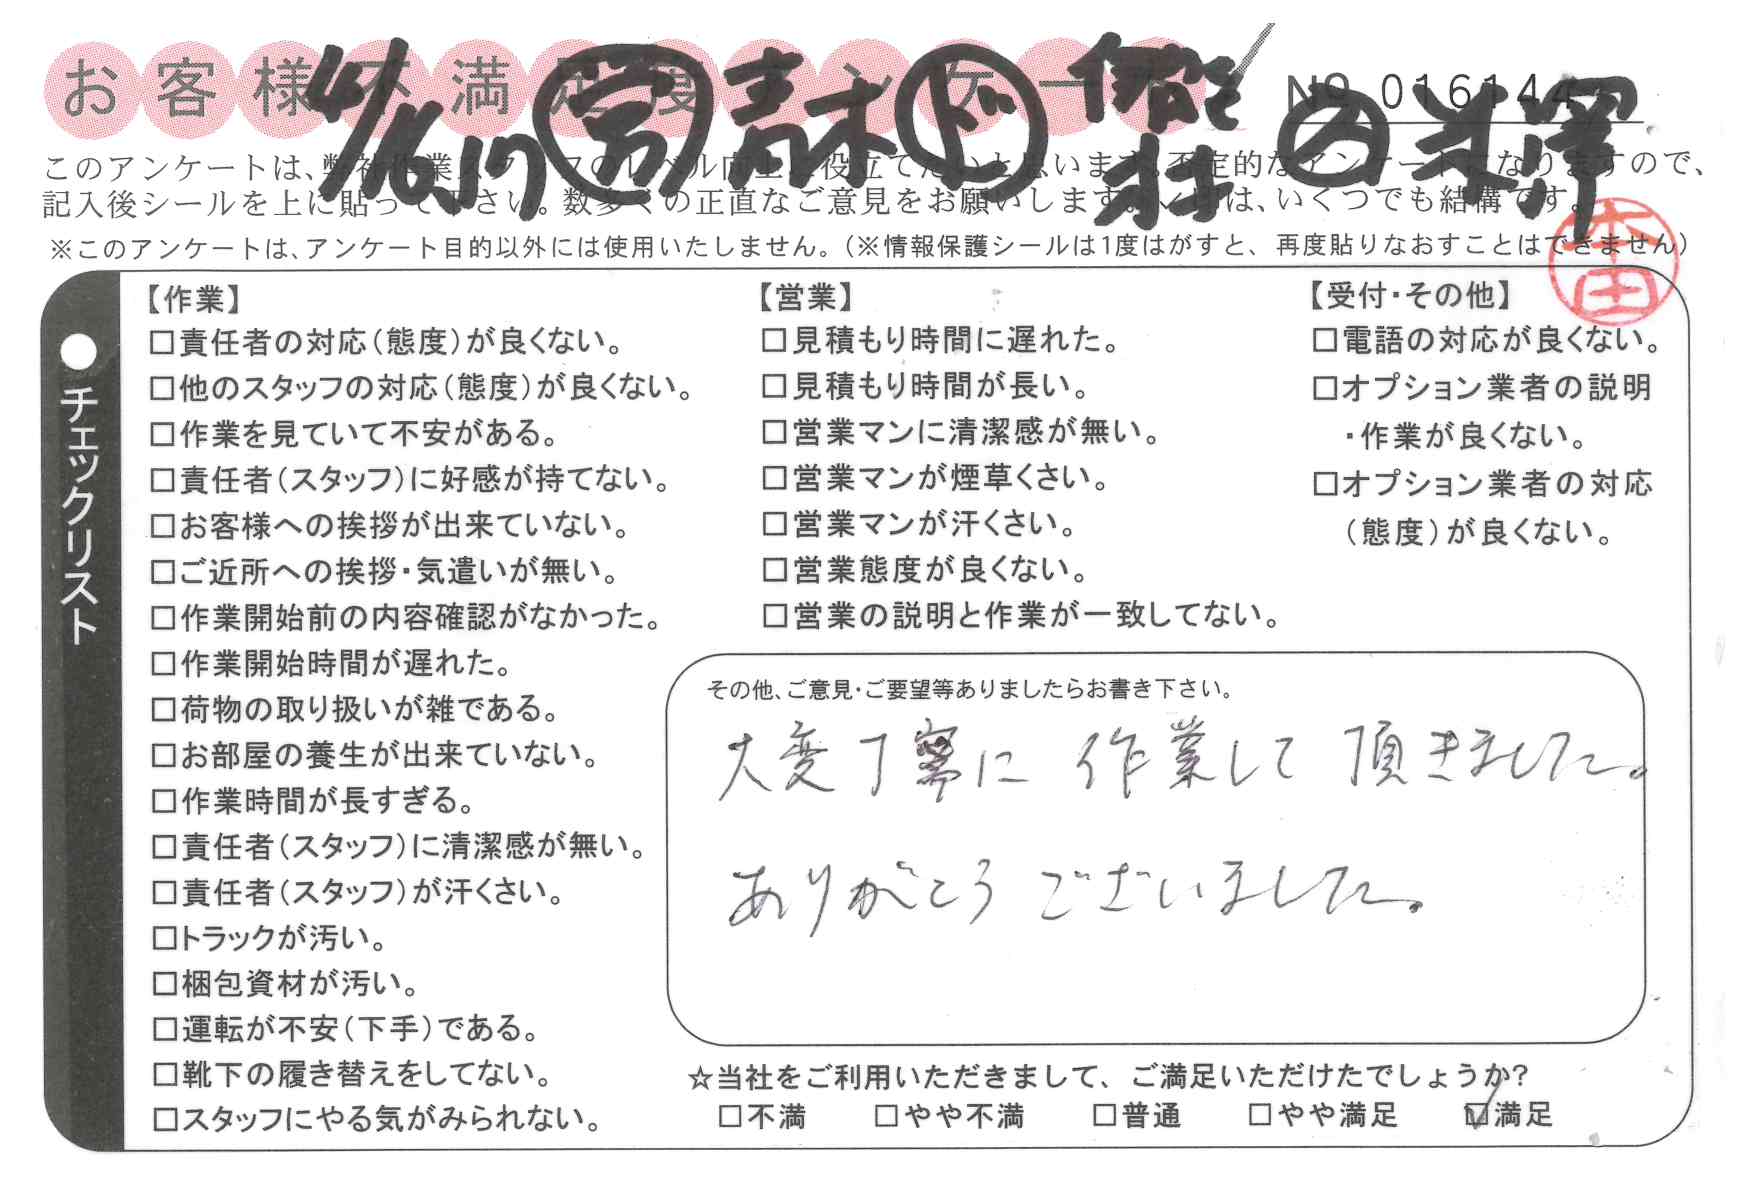 お客様不満足度アンケート
№ 016144
4/16.17 営 青木 ド 米澤
このアンケートは、弊社作業スタッフのレベル向上に役立てたいと思います。否定的なアンケートになりますので、
記入後シールを上に貼って下さい。数多くの正直なご意見をお願いします。レ印は、いくつでも結構です。
※このアンケートは、アンケート目的以外には使用いたしません。（※情報保護シールは1度はがすと、再度貼りなおすことはできません）
本田
●チェックリスト
【作業】
□責任者の対応（態度）が良くない。
□他のスタッフの対応（態度）が良くない。
□作業を見ていて不安がある。
□責任者（スタッフ）に好感が持てない。
□お客様への挨拶が出来ていない。
□ご近所への挨拶・気遣いが無い。
□作業開始前の内容確認がなかった。
□作業開始時間が遅れた。
□荷物の取り扱いが雑である。
□お部屋の養生が出来ていない。
□作業時間が長すぎる。
□責任者（スタッフ）に清潔感が無い。
□責任者（スタッフ）が汗くさい。
□トラックが汚い。
□梱包資材が汚い。
□運転が不安（下手）である。
□靴下の履き替えをしてない。
□スタッフにやる気がみられない。
【営業】
□見積もり時間に遅れた。
□見積もり時間が長い。
□営業マンに清潔感が無い。
□営業マンが煙草くさい。
□営業マンが汗くさい。
□営業態度が良くない。
□営業の説明と作業が一致してない。
【受付・その他】
□電話の対応が良くない。
□オプション業者の説明
・作業が良くない。
□オプション業者の対応
（態度）が良くない。
その他、ご意見・ご要望等ありましたらお書き下さい。
大変丁寧に作業して頂きました。
ありがとうございました。
☆当社をご利用いただきまして、ご満足いただけたでしょうか？
□不満 □やや不満 □普通 □やや満足 ☑満足